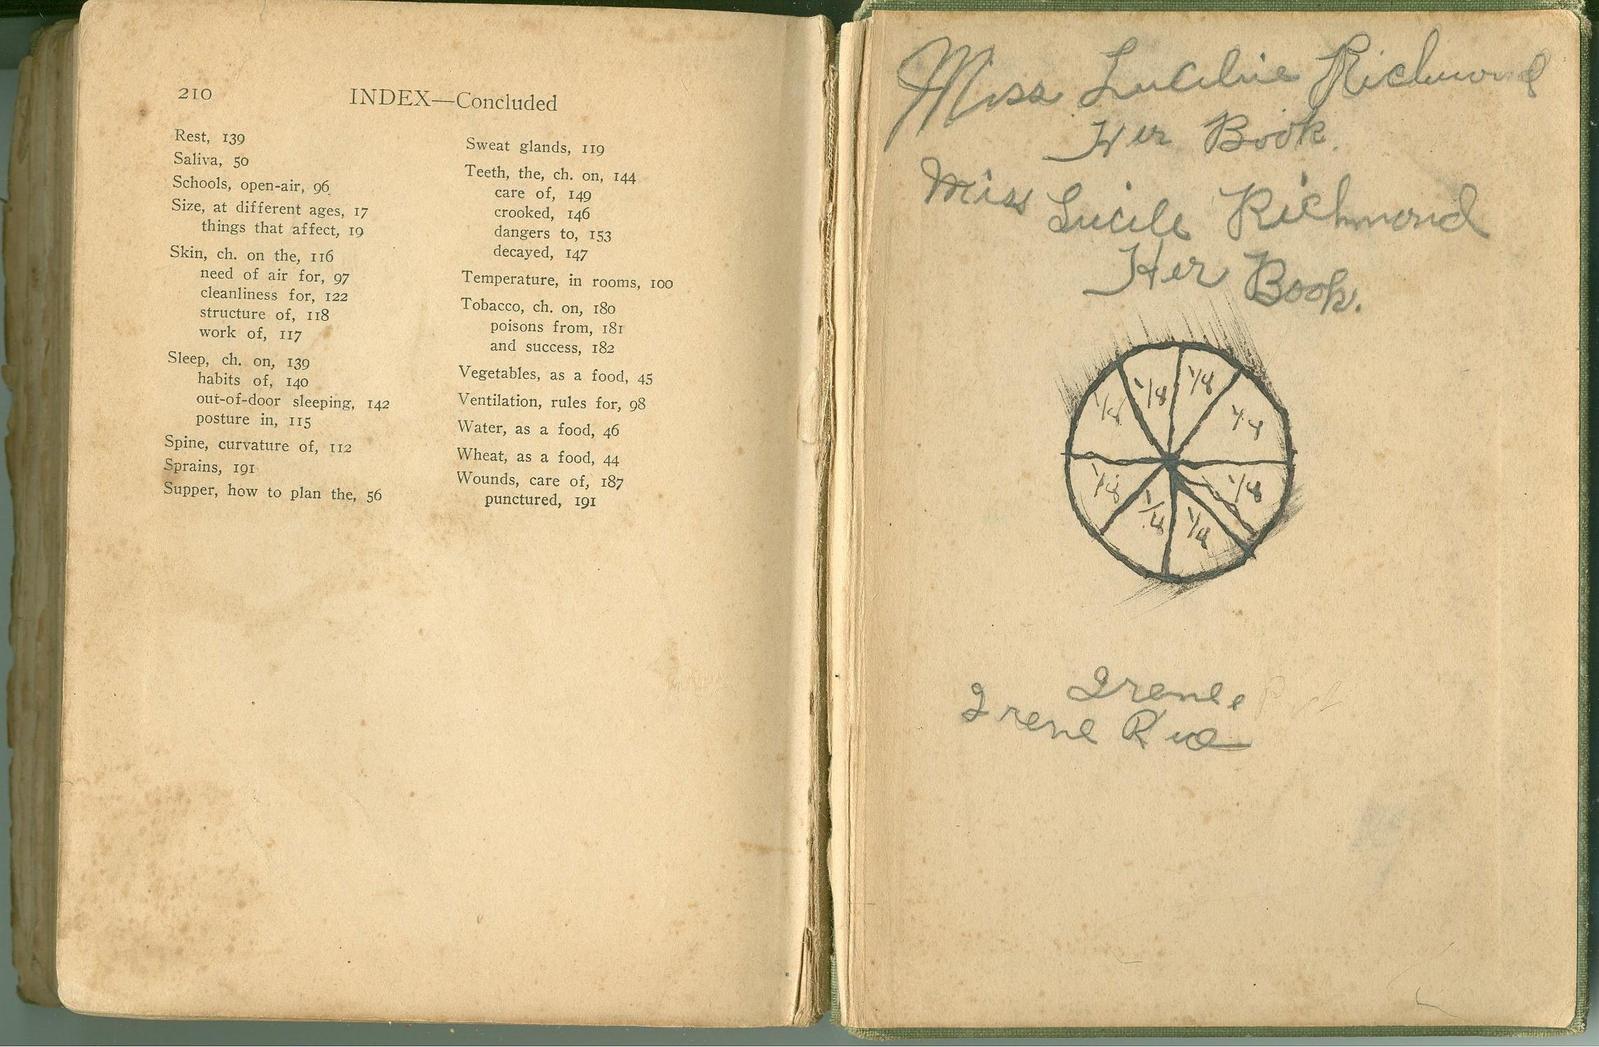 210
INDEX—Concluded
Rest, 139
Saliva, 50
Schools, open-air, 96
Size, at different ages, 17
things that affect, 19
Skin, ch. on the, 116
need of air for, 97
cleanliness for, 122
structure of, 118
work of, 117
Sleep, ch. on, 139
habits of, 140
out-of-door sleeping, 142
posture in, 115
Spine, curvature of, 112
Sprains, 191
Supper, how to plan the, 56
Sweat glands, 119
Teeth, the, ch. on, 144
care of, 149
crooked, 146
dangers to, 153
decayed, 147
Temperature, in rooms, 100
Tobacco, ch. on, 180
poisons from, 181
and success, 182
Vegetables, as a food, 45
Ventilation, rules for, 98
Water, as a food, 46
Wheat, as a food, 44
Wounds, care of, 187
punctured, 191
Miss Richmond
Her Book.
Miss Lucile Richmond
Her Book.
1/8
1/8
1/8
1/8
1/8
1/8
1/8
1/8
Irene
Irene